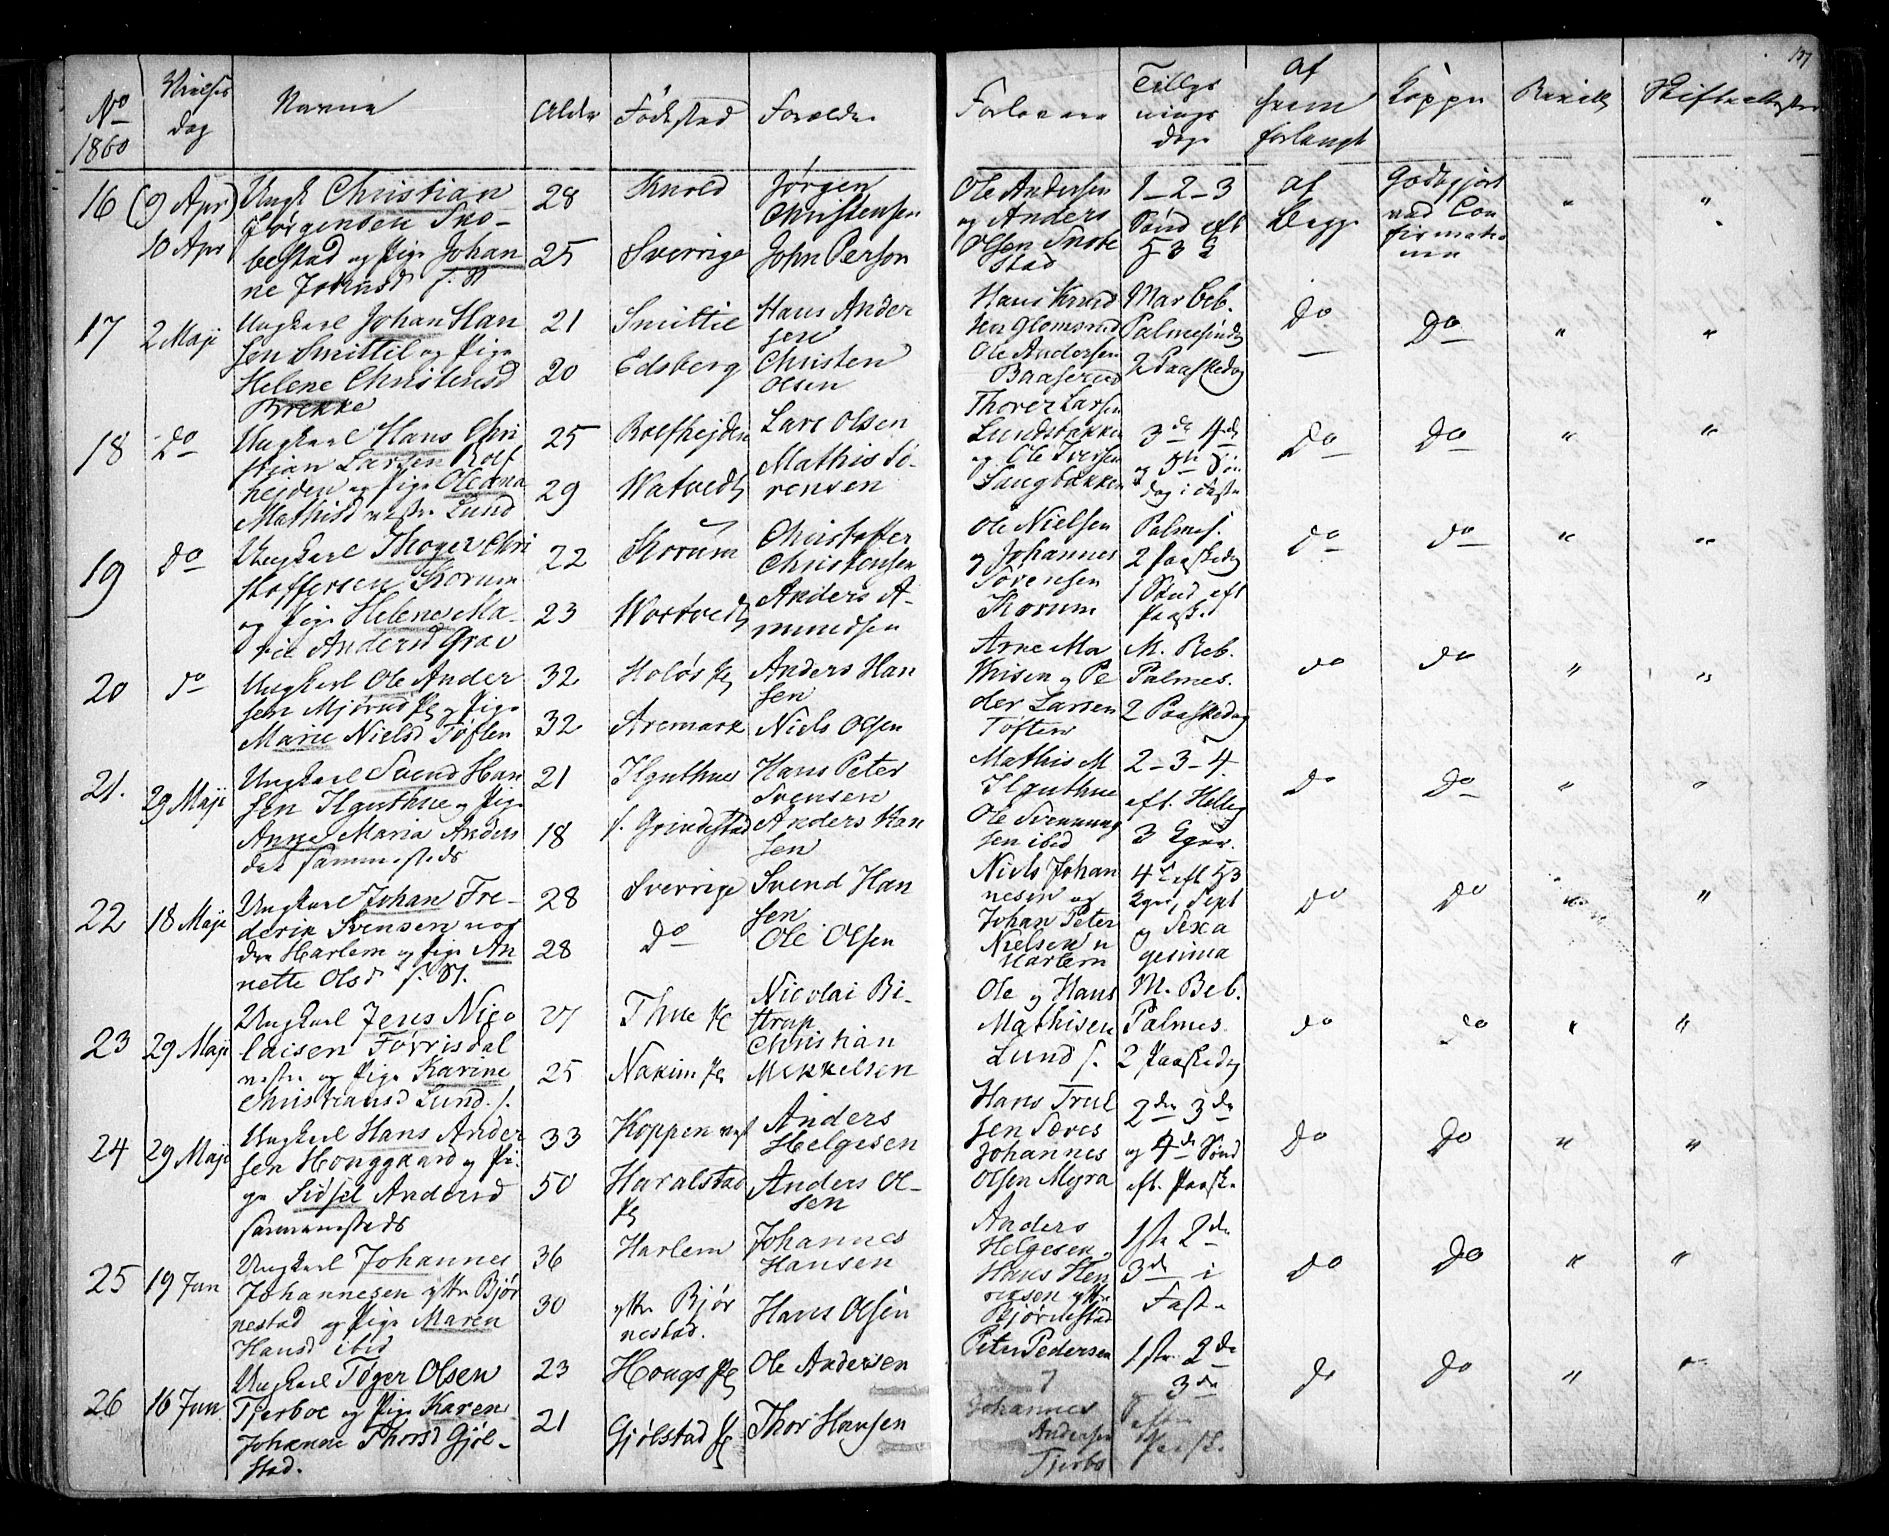 No 1860 Vielses dag Navne Alder Fødested Forældre Forlovere Tillys nings dage af hvem forlangt Koppe Skifteattester 137
16 (9 Apr) 10 Apr
Ungk Christian
Jørgensen Sno-
bestad og Pige Johan
ne Johnsd s. St
28
25
Sverrige
Jørgen
Christensen
John Person
Ole Andersen
og Anders
Olsen Snobe
stad
1-2-3
Sønd eft
af
Begge
Godtgjort
ved Con
firmatio
nen
17 2 Maji
Ungkarl Johan Han
sen Smittil og Pige
Helene Christensd
Brekke
21
20
Smittil
Edsberg
Hans Ander
sen
Christen
Olsen
Hans Knud
sen Glomsrud
Ole Andersen
Baaserud
Mar Beb.
Palmesøndag
2 Paaskedag
Do
Do
18 Do
Ungkarl Hans Chri
stian Larsen Rolf
hejden og Pige Oleana
Mathisd vestre Lund
25
29
Rolfhejden
Watvedt
Lars Olsen
Mathis Sø-
rensen
Thorer Larsen
Lundsbakken
og Ole Iversen
Haugbakken
3de 4de
og 5te Søn
dag i Faste
Do
Do
19 Do
Ungkarl Thoger Chri
stoffersen Skorum
og Pige Helene Ma-
rie Andersd Grav
22
23
Skorum
Wortvedt
Christoffer
Christensen
Anders A-
mundsen
Ole Nielsen
og Johannes
Sørensen
Skorum
Palmes.
2 Paaskedag
1 Sønd eft
Paaske
Do
Do
20 Do
Ungkarl Ole Ander
sen Mjørud Pl og Pige
Marie Nielsd Toften
32
32
Holøs Pl
Aremark
Anders Han
sen
Niels Olsen
Arne Ma
thisen og Pe
der Larsen
Toften
M. Beb.
Palmes.
2 Paaskedag
Do
Do
21. 29 Maji
Ungkarl Svend Han
sen Ilguthue og Pige
Anne Maria Anders
dat sammesteds
21
18
Ilguthue
s. Grindestad
Hans Peter
Svensen
Anders Han
sen
Mathis M
Ilguthue
Ole Svennung
sen ibid
2-3-4.
eft. Hellig
3 Konger.
Do
Do
22 18 Maji
Ungkarl Johan Fre-
derik Svensen nor
dre Harlem og Pige An
nette Olsd s. St.
28
28
Sverrige
Do
Svend Han
sen
Ole Olsen
Niels Johan
nesen og
Johan Peter
Nielsen n
Harlem
4de eft H3
Kger, Sept
og Sexa
gesima
Do
Do
23 29 Maji
Ungkarl Jens Nico
laisen Førrisdal
vestre og Pige Karine
Christiansd Lund. s.
27
25
Thue Pl
Nakim Pl
Nicolai Bi-
strup
Christian
Mikkelsen
Ole og Hans
Mathisen
Lund s.
M. Beb.
Palmes.
2 Paaskedag
Do
Do
24 29 Maji
Ungkarl Hans Ander
sen Honggaard og Pi-
ge Sidsel Andersd
sammesteds
33
50
Koppen vest
Haralstad
Pl
Anders
Helgesen
Anders Ol-
sen
Hans Trul
sen Sæves
Johannes
Olsen Myra
2den 3de
og 4de Sønd
eft. Paaske
Do
Do
25 19 Jun
Ungkarl Johannes
Johannesen yttre Bjør
nestad og Pige Maren
Hansd ibid
36
30
Harlem
yttre Bjør
nestad.
Johannes
Hansen
Hans Olsen
Anders
Helgesen,
Hans Hen
riksen yttre
Bjørnestad
1ste 2den
3de i
Faste
Do
Do
26 16 Jun
Ungkarl Tøger Olsen
Tjerboe og Pige Karen
Johanne Thorsd Gjøl-
stad.
23
21
Hougs Pl
Gjølstad Pl
Ole Andersen
Thor Hansen
Peter Pedersen
Johannes
Andersen
Tjerbo
1ste 2de
3de
efter
Paaske
Do
Do